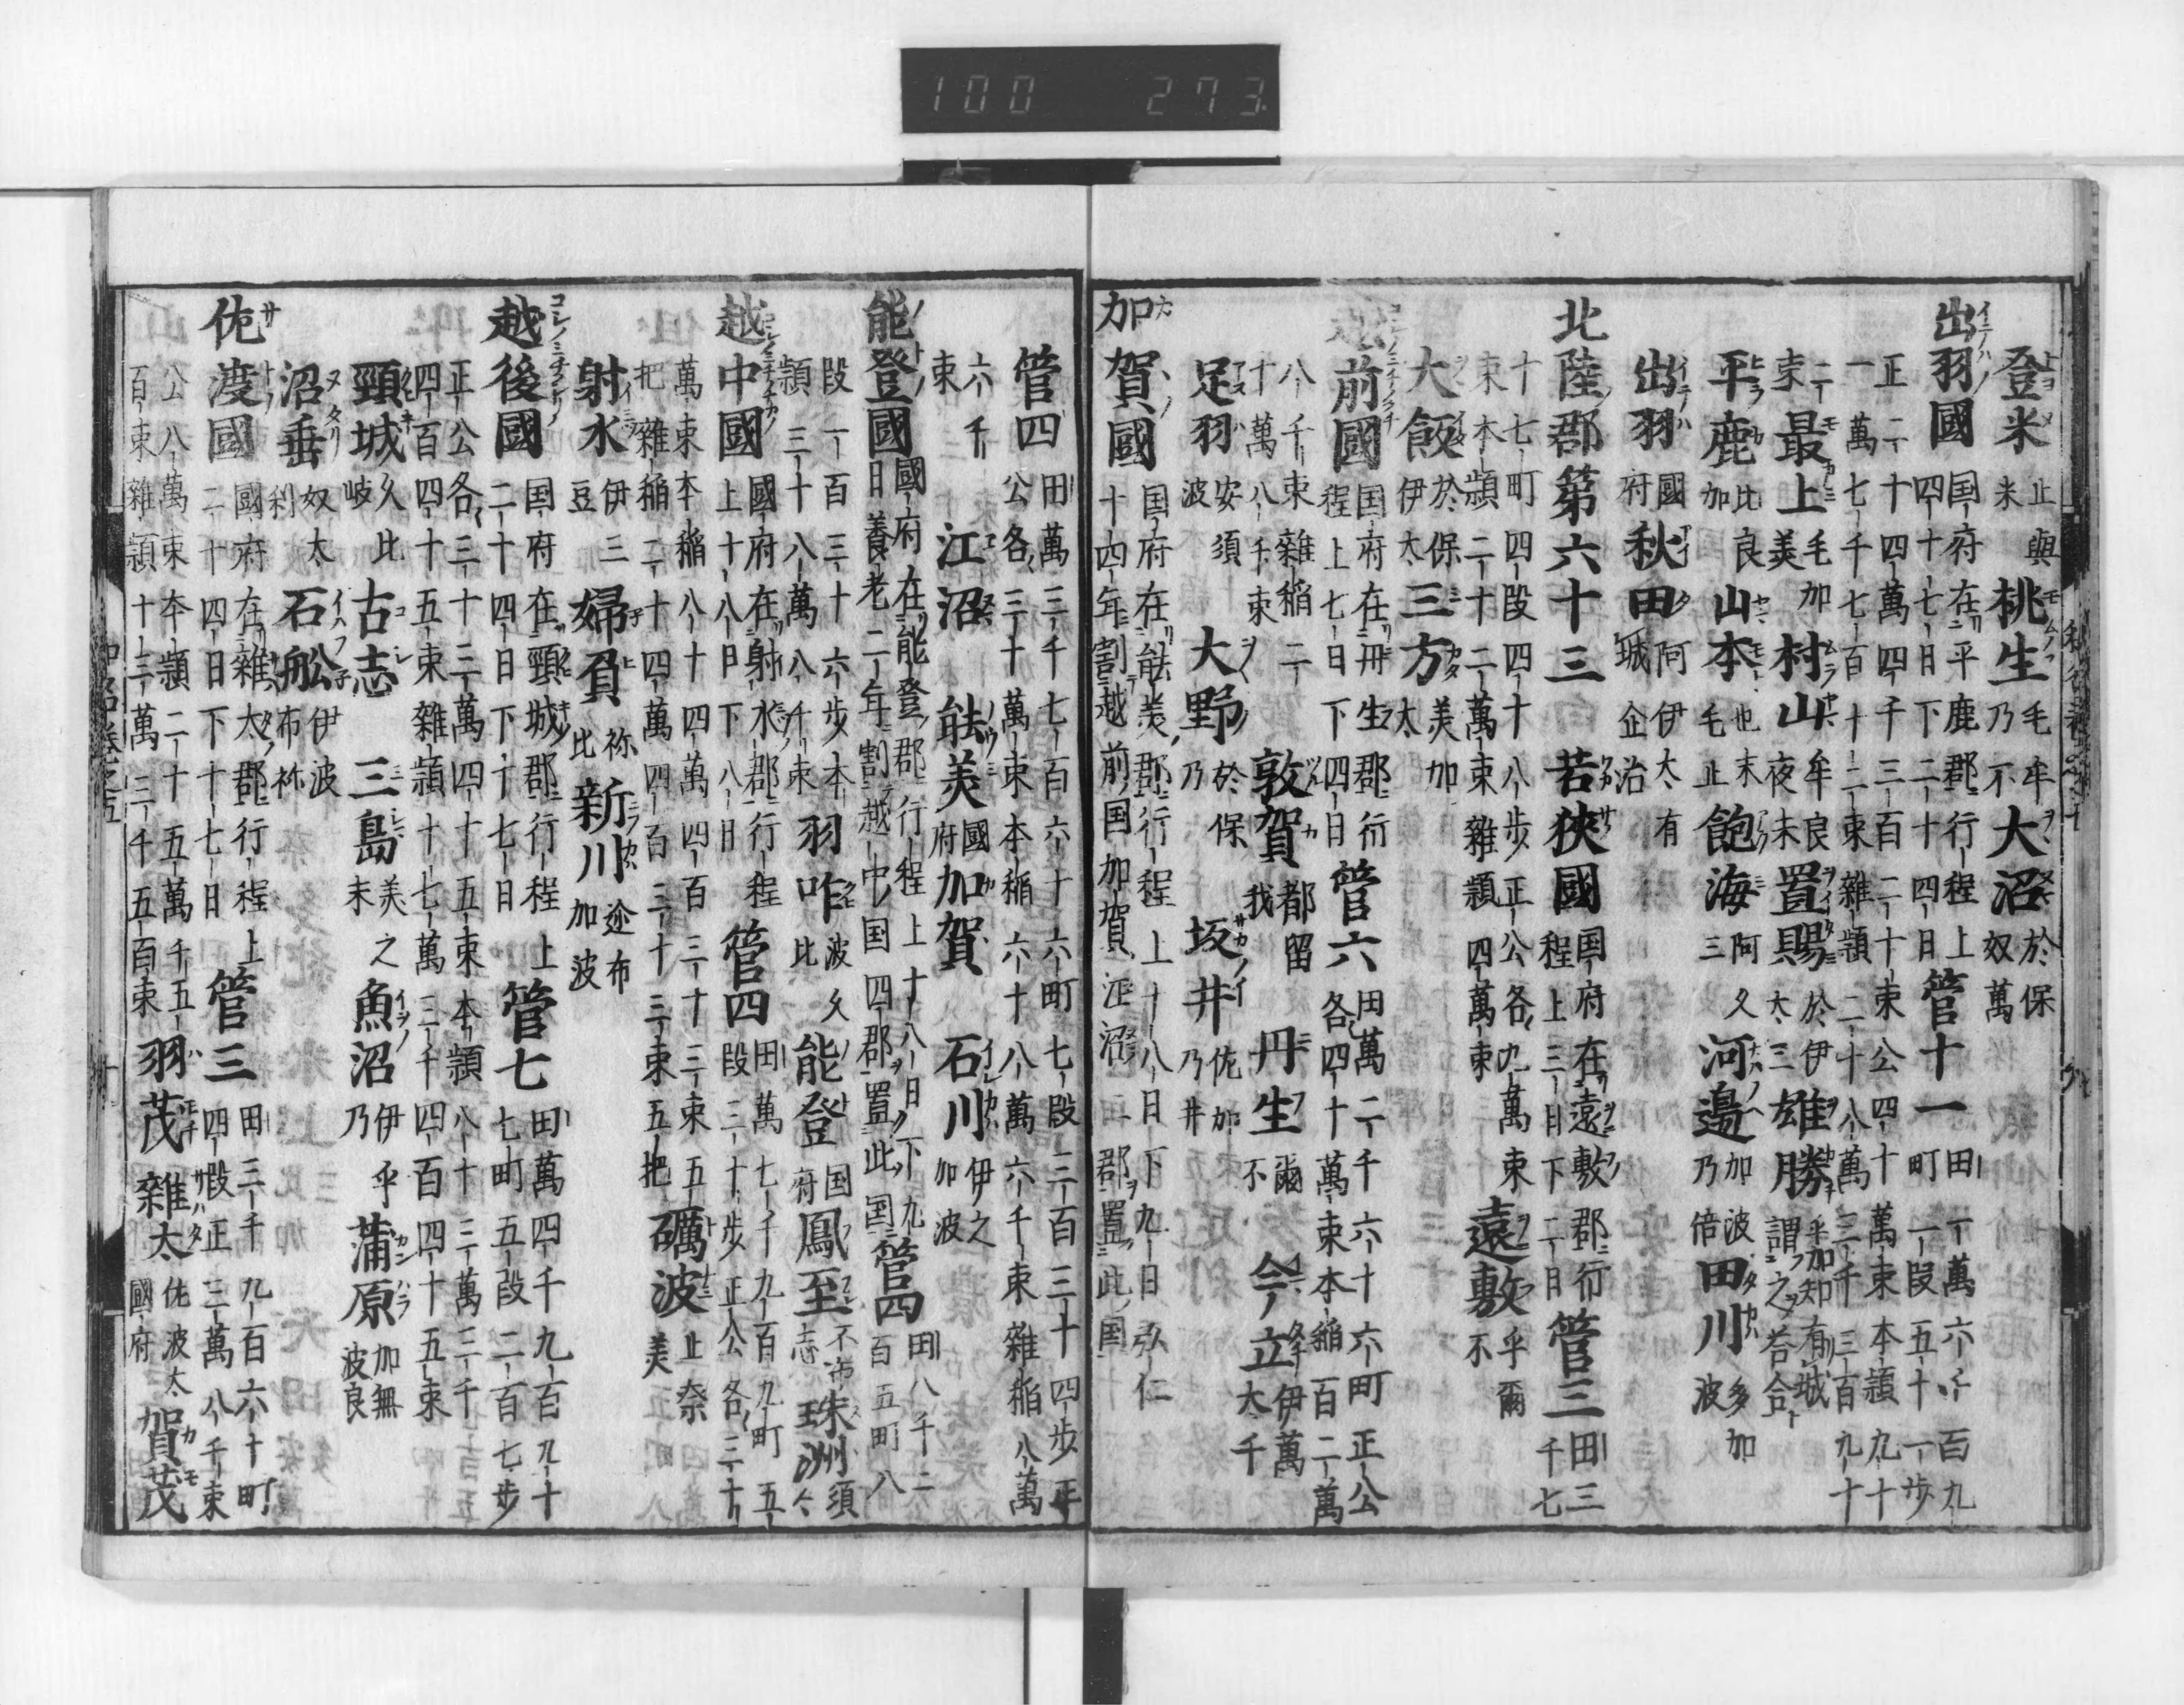 100 273
登米 止與米 桃生 毛牟乃不 大沼 於保奴萬
出羽國 国府在平鹿郡行程上四十七日下二十四日 管十一 田二萬六千百九町一段五十一歩
正二十四萬四千三百二十束公四十萬束本穎九十
一萬七千七百十二束雜穎二十八萬三千三百九十
二束 最上 毛加美 村山 牟良夜末 置賜 於伊太三 雄勝 乎加知有城謂之答合
平鹿 比良加 山本 也末毛止 飽海 阿久三 河邊 加波乃倍 田川 多加波
出羽 國府 秋田 阿伊太有城企治
北陸郡第六十三 若狹國 国府在遠敷郡行程上三日下二日 管三 田三千七
十七町四段四十八歩正公各九萬束
束本穎二十二萬束雜穎四萬束 遠敷 乎爾不
大飯 於保伊太 三方 美加太
越前國 国府在丹生郡行程上七日下四日 管六 田萬二千六十六町正公各四十萬束本稲百二萬
八千束雜稲二十萬八千束 敦賀 都留我 丹生 爾不 今立 伊萬太千
足羽 安須波 大野 於保乃 坂井 佐加乃井
加賀國 国府在能美郡行程上十八日下九日弘仁十四年割越前国加賀江沼二郡置此国
管四 田萬三千七百六十六町七段三百三十四歩正公各三十萬束本稲六十八萬六千束雜稲八萬
六千束 江沼 能美 國府 加賀 石川 伊之加波
能登國 國府在能登郡行程上十八日下九日養老二年割越中国四郡置此国 管四 田八千二百五町八
段一百三十六歩本穎三十八萬八千束 羽咋 波久比 能登 国府 鳳至 不布志 珠洲 須々
越中國 國府在射水郡行程上十八日下八日 管四 田萬七千九百九町五段三十歩正公各三十
萬束本稲八十四萬四百三十三束五把雜稲二十四萬四百三十三束五把 礪波 止奈美
射水 伊三豆 婦負 祢比 新川 迩布加波
越後國 国府在頸城郡行程上二十四日下十七日 管七 田萬四千九百九十七町五段二百七歩
正公各三十三萬四十五束本穎八十三萬三千
四百四十五束雜穎十七萬三千四百四十五束
頸城 久比岐 古志 三島 美之末 魚沼 伊乎乃 蒲原 加無波良
沼垂 奴太利 石舩 伊波布祢
佐渡國 國府在雜太郡行程上二十四日下十七日 管三 田三千九百六十町四段正三萬八千束
公八萬束本穎二十五萬千五百束雜穎十三萬三千五百束 羽茂 雜太 佐波太國府 賀茂